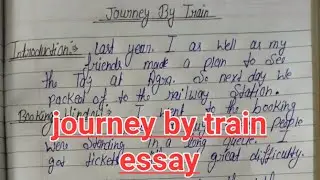 Journey By Train
Introduction:- Last year I as well as my
friends made a plan to see
the Taj at Agra. So next day we
packed of to the railway station.
Booking Window:- I went to the booking
People
were standing in a long queue. I
got tickets great difficulty.
journey by train
essay